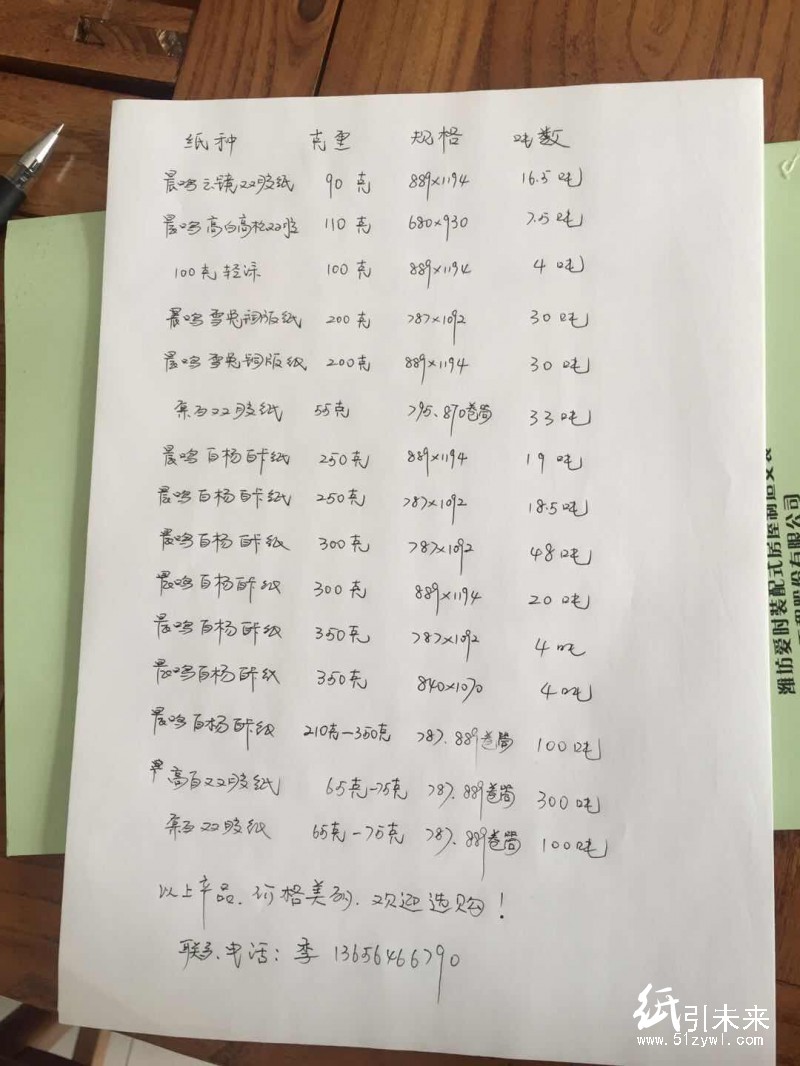 纸种 克重 规格 吨数
晨鸣云镜双胶纸 90克 889×1194 16.5吨
晨鸣高白高松双胶 110克 680×930 7.5吨
100克轻涂 100克 889×1194 4吨
晨鸣雪兔铜版纸 200克 787×1092 30吨
晨鸣雪兔铜版纸 200克 889×1194 30吨
双胶纸 55克 795.870卷筒 33吨
晨鸣白杨白卡纸 250克 889×1194 19吨
晨鸣白杨白卡纸 250克 787×1092 18.5吨
晨鸣白杨白卡纸 300克 787×1092 48吨
晨鸣白杨白卡纸 300克 889×1194 20吨
晨鸣白杨白卡纸 350克 787×1092 4吨
晨鸣白杨白卡纸 350克 840×1070 4吨
晨鸣白杨白卡纸 210克-350克 787.889卷筒 100吨
高白双胶纸 65克-75克 787.889卷筒 300吨
双胶纸 65克-75克 787.889卷筒 100吨
以上产品.价格美丽.欢迎选购!
联系电话:季 13656466790
潍坊爱时装配式房屋制造安装
工程股份有限公司
纸引未来
www.51zywl.com